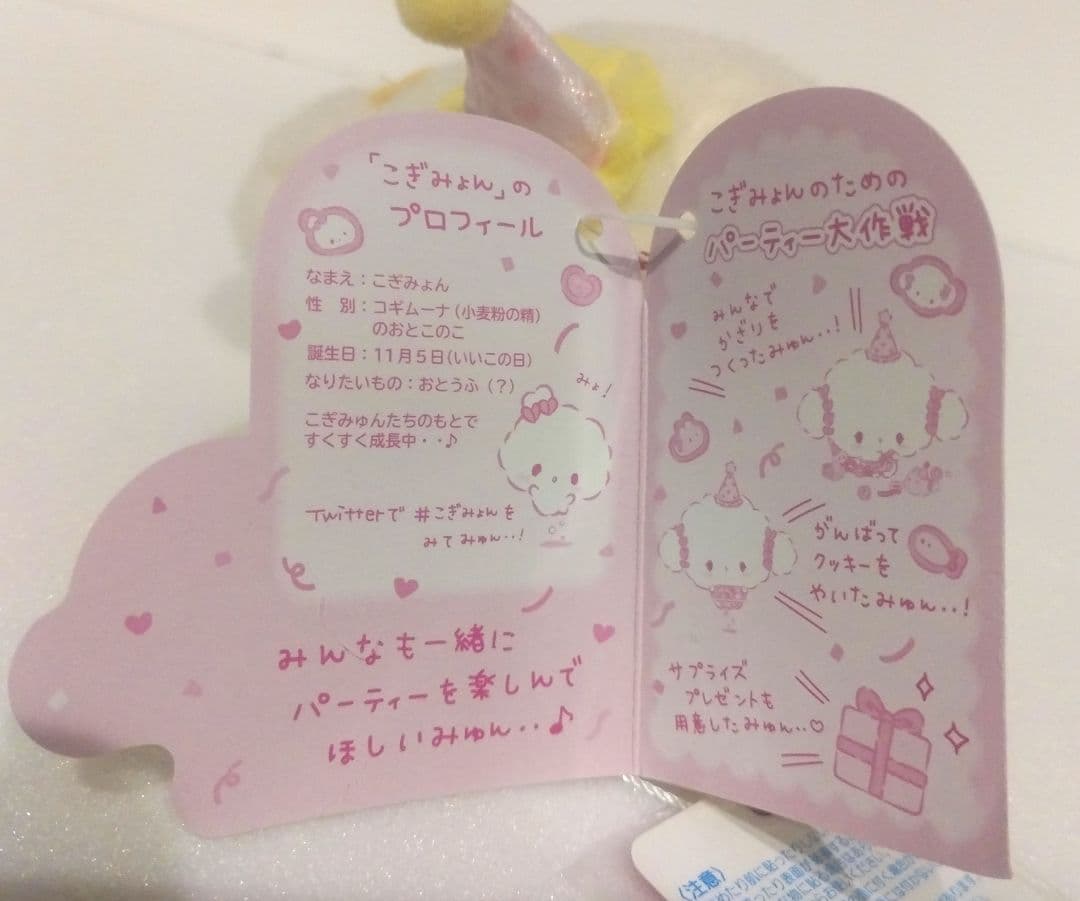 「こぎみょん」の
プロフィール
なまえ：こぎみょん
性　別：コギムーナ（小麦粉の精）
のおとこのこ
誕生日：11月5日（いいこの日）
なりたいもの：おとうふ（？）
こぎみゅんたちのもとで
すくすく成長中・・♪
みょ！
Twitterで #こぎみょんを
みてみゅん‥！
みんなも一緒に
パーティーを楽しんで
ほしいみゅん‥♪
こぎみょんのための
パーティー大作戦
みんなで
かざりを
つくったみゅん‥！
がんばって
クッキーを
やいたみゅん‥！
サプライズ
プレゼントも
用意したみゅん‥♡
（注意）